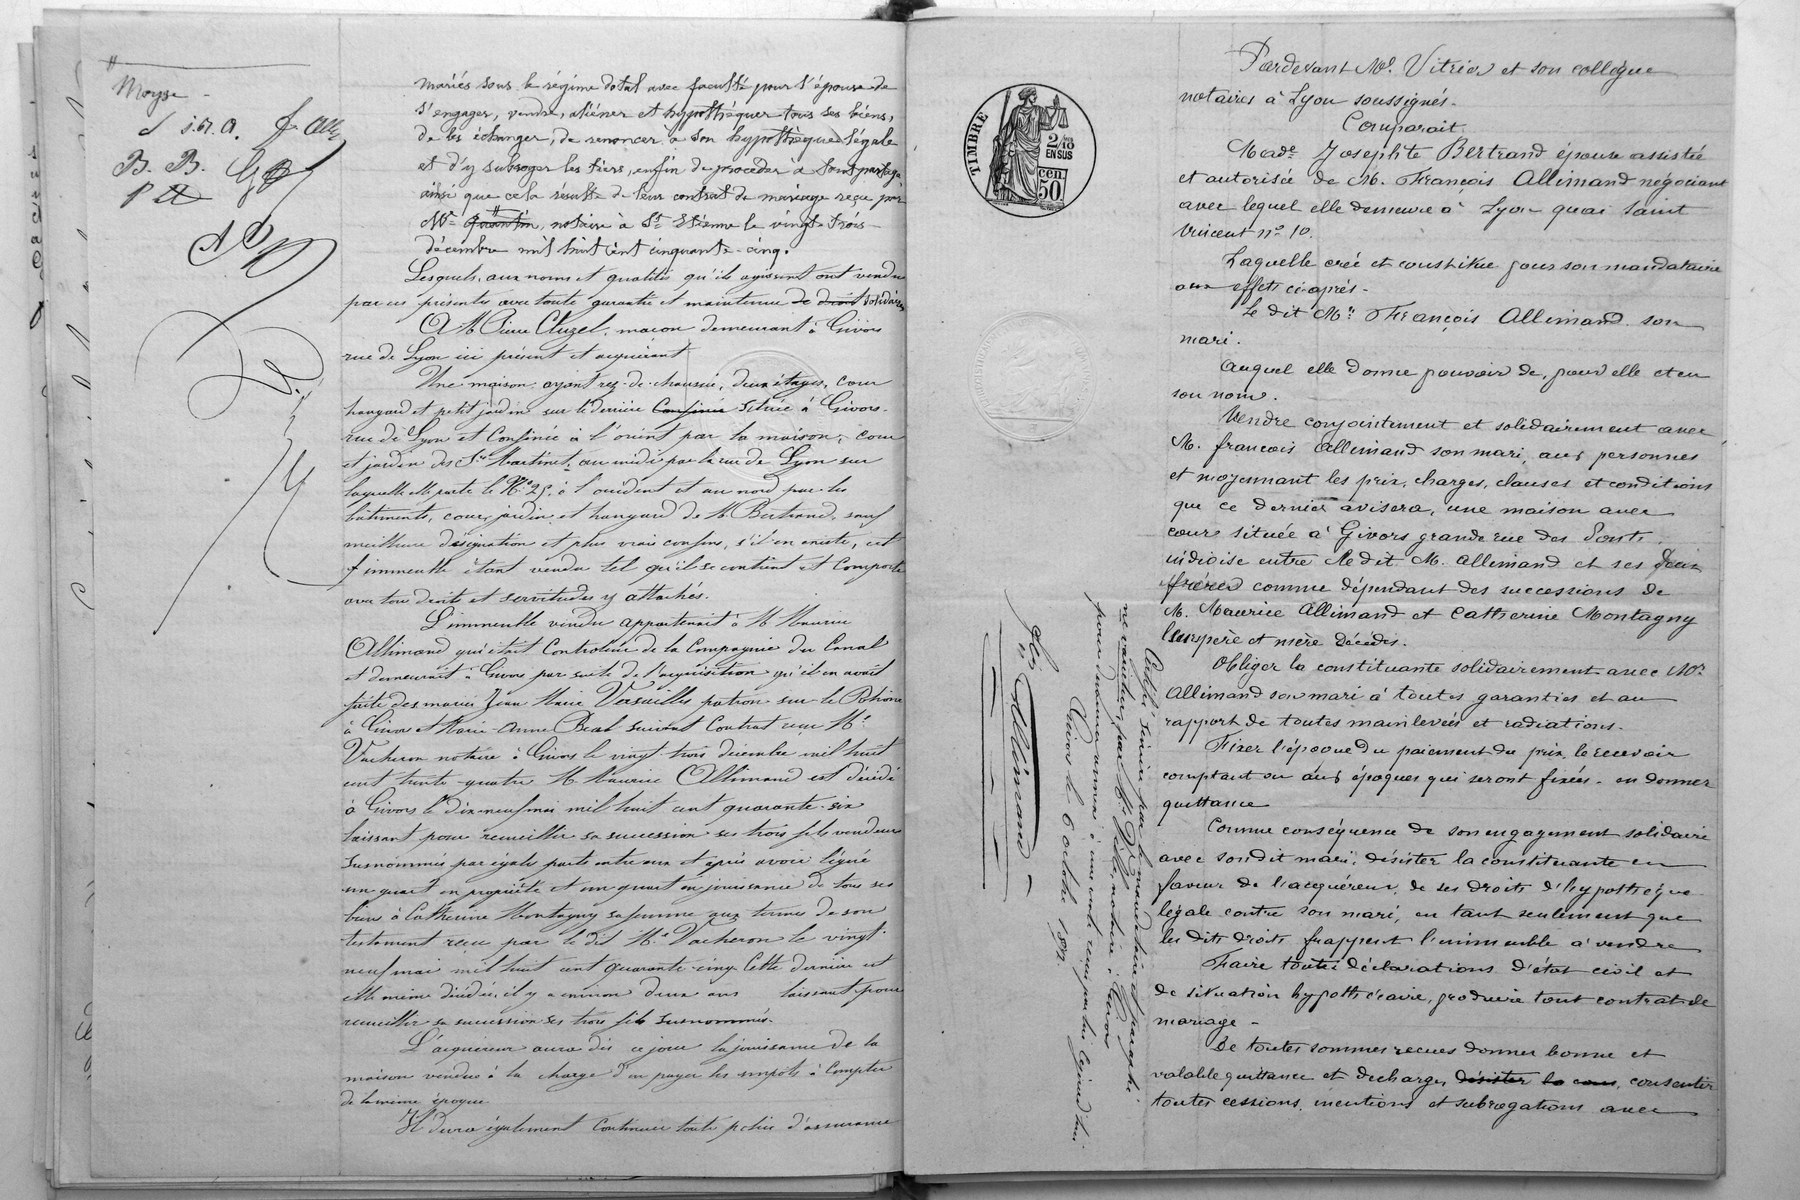 Moyse
J. M. A. f. All
B. B.
mariés sous le régime dotal avec faculté pour l'épouse de
s'engager, vendre, aliéner et hypothéquer tous ses biens,
de les échanger, de renoncer à son hypothèque légale
et d'y subroger les tiers, enfin de procéder à tous partages
ainsi que cela résulte de leur contrat de mariage reçu par
Me Quantin, notaire à St Etienne le vingt trois
décembre mil huit cent cinquante-cinq.
Lesquels, aux noms et qualités qu'ils agissent ont vendu
par ces présentes avec toute garantie et maintenue de droit solidaires
A M. Pierre Cluzel, maçon demeurant à Givors
rue de Lyon ici présent et acquérant
Une maison ayant rez-de-chaussée, deux étages, cour
hangard et petit jardin sur le derrière Confinée située à Givors
rue de Lyon et Confinée à l'orient par la maison, cour
et jardin des Srs Martinet, au midi par la rue de Lyon sur
laquelle elle porte le No 25, à l'occident et au nord par les
bâtiments, cour, jardin et hangard de M. Bertrand, sauf
meilleure désignation et plus vrais confins, s'il en existe, cet
immeuble étant vendu tel qu'il se contient et Comporte
avec tous droits et servitudes y attachés.
L'immeuble vendu appartenait à M. Maurice
Allimand qui était Contrôleur de la Compagnie du Canal
et demeurait à Givors par suite de l'acquisition qu'il en avait
faite des mariés Jean Marie Versailles patron sur le Rhône
à Givors et Marie Anne Beal suivant Contrat reçu Me
Vacheron notaire à Givors le vingt trois décembre mil huit
cent trente quatre M. Maurice Allimand est décédé
à Givors le dix neuf mai mil huit cent quarante six
laissant pour recueillir sa succession ses trois fils vendeurs
susnommés par égale parts entre eux et après avoir légué
un quart en propriété et un quart en jouissance de tous ses
biens à Catherine Montagny sa femme aux termes de son
testament reçu par le dit Me Vacheron le vingt
neuf mai mil huit cent quarante cinq Cette dernière est
elle même décédée, il y a environ deux ans laissant pour
recueillir sa succession ses trois fils susnommés.
L'acquéreur aura dès ce jour la jouissance de la
maison vendue à la charge d'en payer les impôts à Compter
de la même époque
Il devra également Continuer toute police d'assurance
TIMBRE
2/10
EN SUS
50
cen
Certifié sincère par le mandataire et paraphé
ne varietur par Me notaire à Givors
pour demeurer annexé à une vente reçue par lui Cejourd'hui
Givors le 6 octobre 18
fois Allimand
Pardevant Me Vitrier et son collègue
notaires à Lyon soussignés.
Comparait
Made Josephte Bertrand épouse assistée
et autorisée de M. François Allimand négociant
avec lequel elle demeure à Lyon quai saint
Vincent no 10.
Laquelle crée et constitue pour son mandataire
aux effets ci-après.
Le dit Mr François Allimand son
mari.
Auquel elle donne pouvoir de, pour elle et en
son nom.
Vendre conjointement et solidairement avec
M. françois Allimand son mari, aux personnes
et moyennant les prix, charges, clauses et conditions
que ce dernier avisera, une maison avec
cour située à Givors grande rue des Ponts,
indivise entre le dit M. Allimand et ses deux
frères comme dépendant des successions de
M. Maurice Allimand et Catherine Montagny
leurs père et mère décédés.
Obliger la constituante solidairement avec Mr
Allimand son mari à toutes garanties et au
rapport de toutes mainlevées et radiations.
Fixer l'époque du paiement du prix, le recevoir
comptant ou aux époques qui seront fixées. en donner
quittance
Comme conséquence de son engagement solidaire
avec son dit mari, désister la constituante en
faveur de l'acquéreur, de ses droits d'hypothèque
légale contre son mari, en tant seulement que
les dits droits frappent l'immeuble à vendre
Faire toutes déclarations d'état civil et
de situation hypothécaire, produire tout contrat de
mariage.
De toutes sommes reçues donner bonne et
valable quittance et décharge, désister la cons. consentir
toutes cessions, mentions et subrogations avec